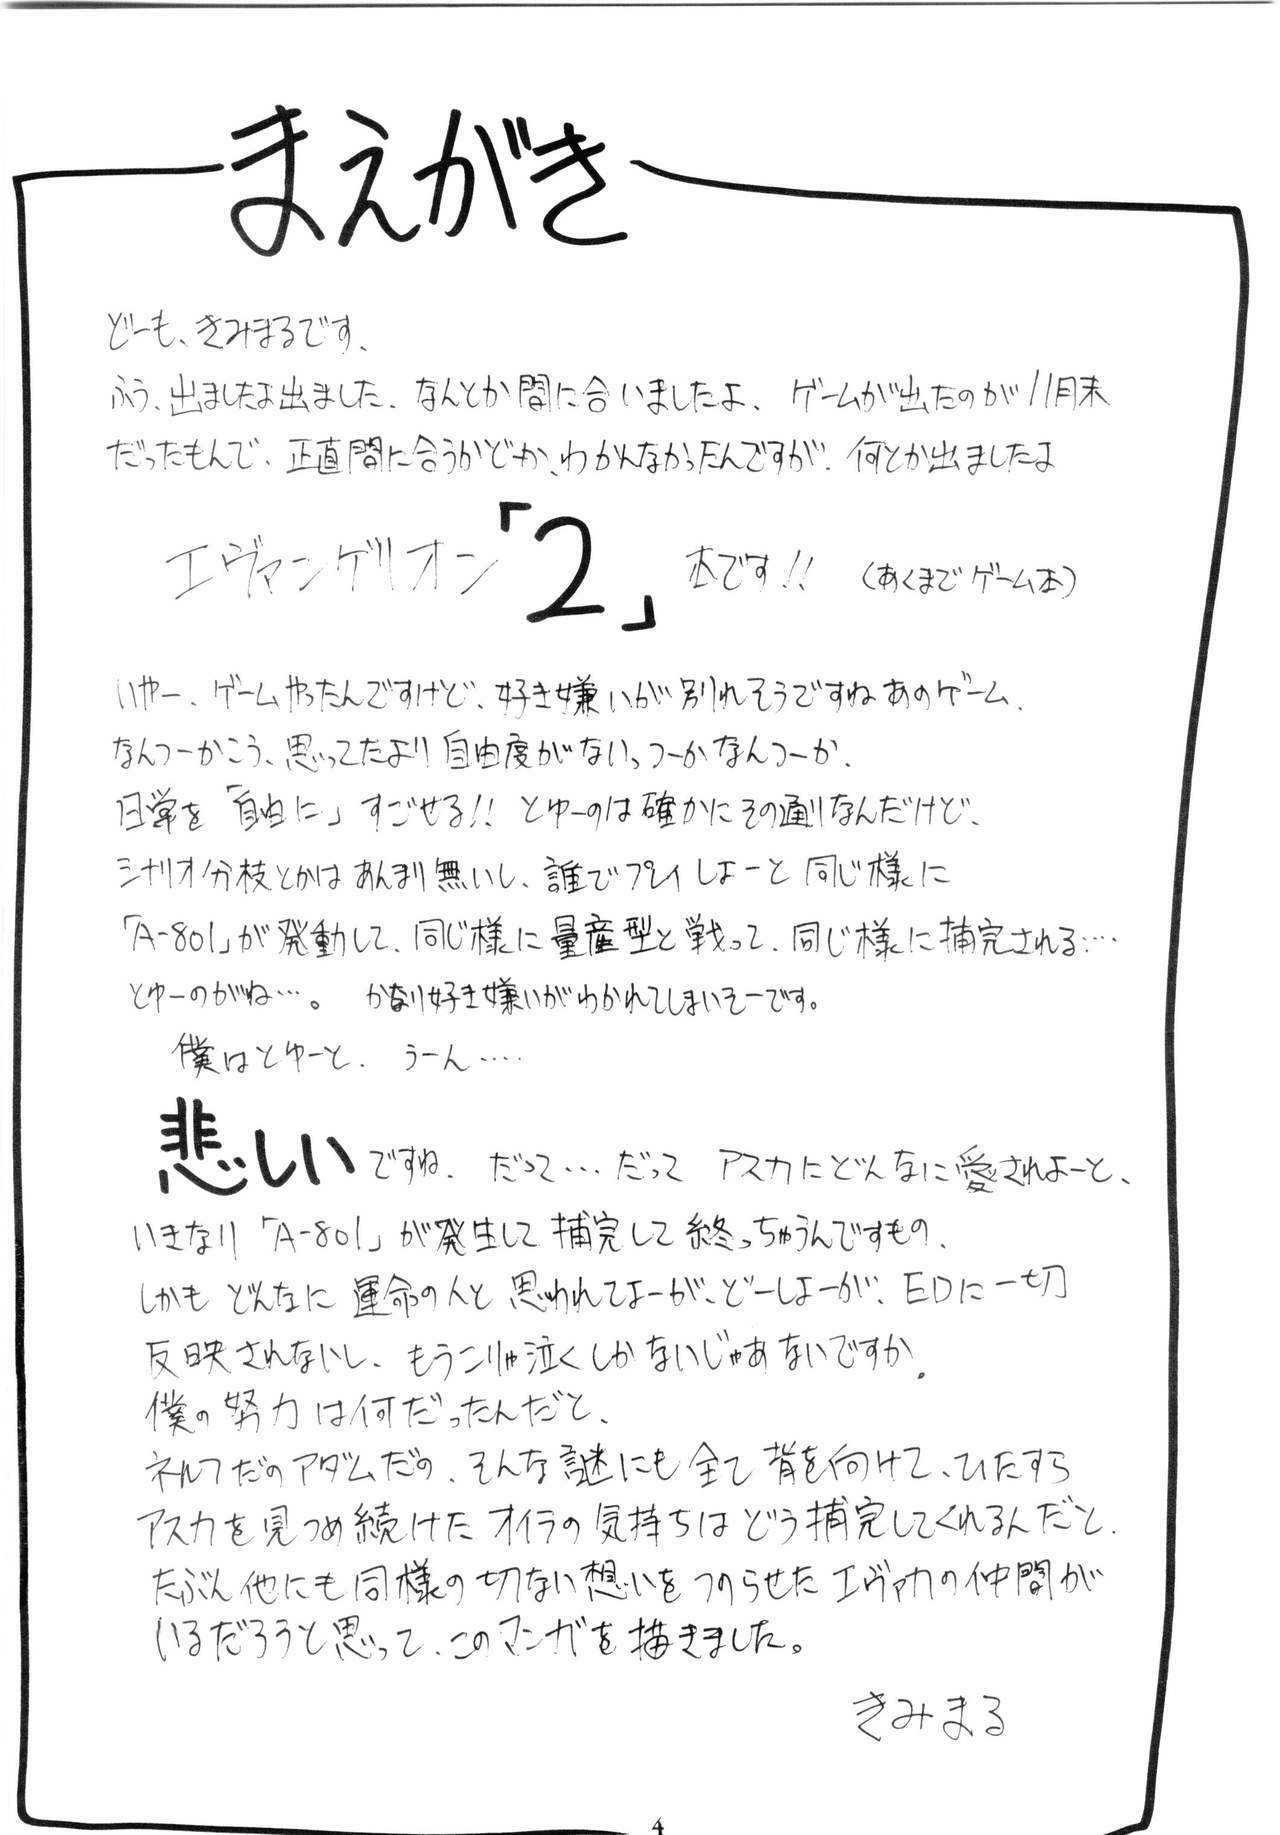 まえがき
どーも、きみまるです、
ふう、出ましたよ出ました、なんとか間に合いましたよ、ゲームが出たのが11月末
だったもんで、正直間に合うかどーか、わかんなかったんですが、何とか出ましたよ
エヴァンゲリオン「2」本です!!（あくまでゲーム本）
いやー、ゲームやったんですけど、好き嫌いが別れそうですねあのゲーム、
なんつーかこう、思ってたより自由度がないっつーかなんつーか、
日常を「自由に」すごせる!!とゆーのは確かにその通りなんだけど、
シナリオ分枝とかはあんまり無いし、誰でプレイしよーと同じ様に
「A-801」が発動して、同じ様に量産型と戦って、同じ様に補完される‥‥
とゆーのがね…。かなり好き嫌いがわかれてしまいそーです。
僕はとゆーと、うーん‥‥
悲しいですね、だって…だってアスカにどんなに愛されよーと、
いきなり「A-801」が発生して補完して終っちゃうんですもの、
しかもどんなに運命の人と思われてよーが、どーしよーが、EDに一切
反映されないし、もうこりゃ泣くしかないじゃあないですか。
僕の努力は何だったんだと、
ネルフだのアダムだの、そんな謎にも全て背を向けて、ひたすら
アスカを見つめ続けたオイラの気持ちはどう補完してくれるんだと、
たぶん他にも同様の切ない想いをつのらせたエヴァカの仲間が
いるだろうと思って、このマンガを描きました。
きみまる
4